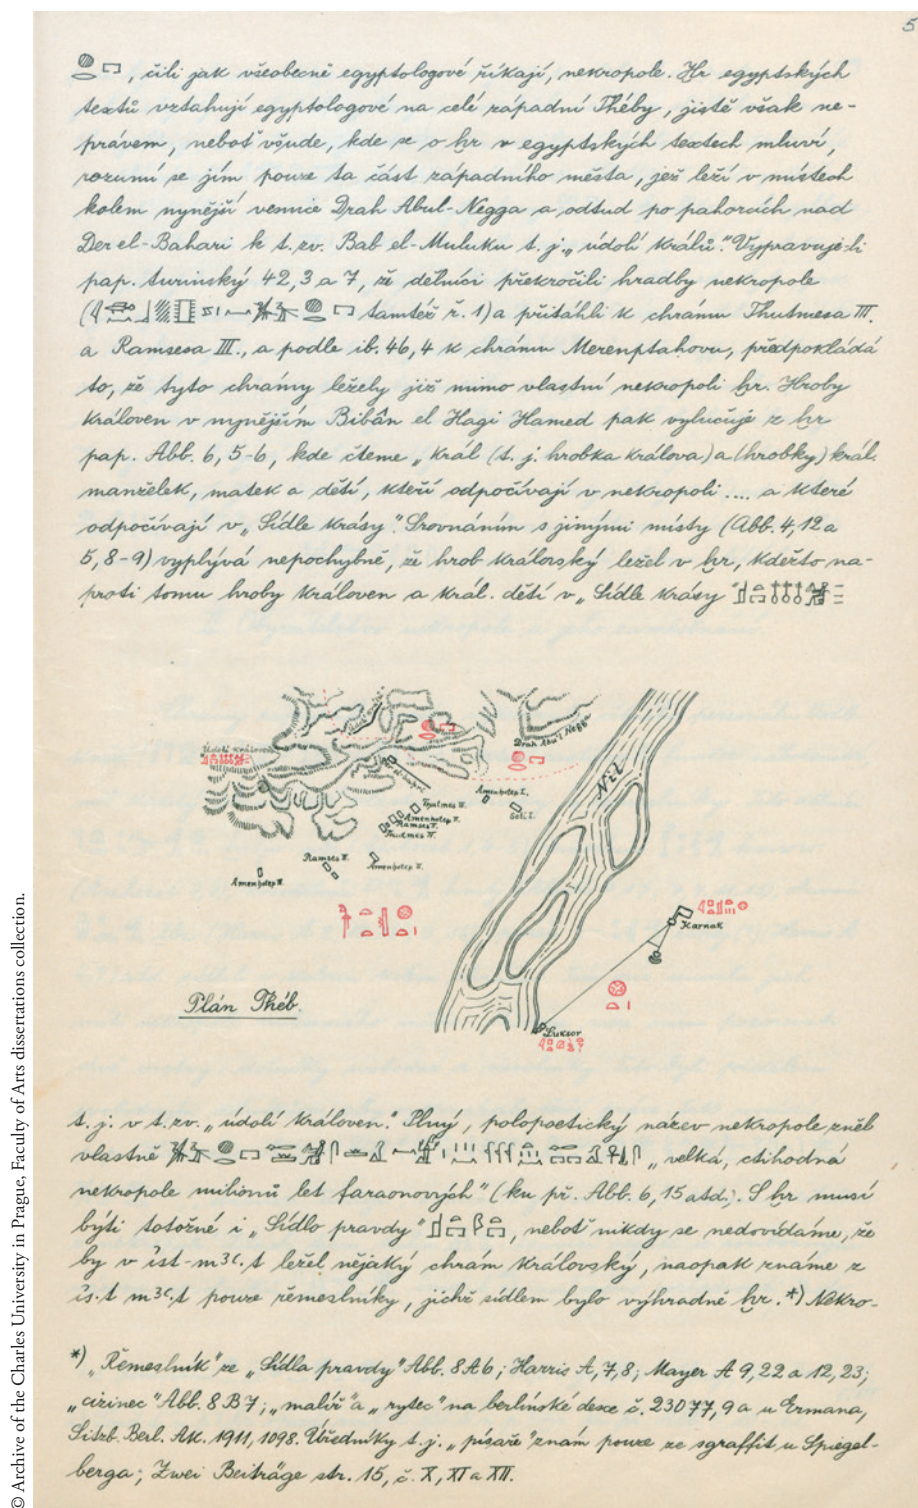 5
, čili jak všeobecně egyptologové říkají, nekropole. Ḫr egyptských
textů vztahují egyptologové na celé západní Théby, jistě však ne-
právem, neboť všude, kde se o ḫr v egyptských textech mluví,
rozumí se jím pouze ta část západního města, jež leží v místech
kolem nynější vesnice Drah Abul-Negga a odtud po pahorcích nad
Der el-Bahari k t. zv. Bab el-Muluku t. j. „údolí králů". Vypravuje-li
pap. turinský 42, 3 a 7, že dělníci překročili hradby nekropole
( tamtéž ř. 1) a přitáhli k chrámu Thutmesa III.
a Ramsesa III., a podle ib. 46, 4 k chrámu Merenptahovu, předpokládá
to, že tyto chrámy ležely již mimo vlastní nekropoli ḫr. Hroby
královen v nynějším Bibân el Hagi Hamed pak vylučuje z ḫr
pap. Abb. 6, 5-6, kde čteme „král (t. j. hrobka králova) a (hrobky) král.
manželek, matek a dětí, kteří odpočívají v nekropoli .... a které
odpočívají v „Sídle krásy". Srovnáním s jinými místy (Abb. 4, 12 a
5, 8-9) vyplývá nepochybně, že hrob královský ležel v ḫr, kdežto na-
proti tomu hroby královen a král. dětí v „Sídle krásy"
Údolí královen
Drah Abu'l Negga
Nil
Amenhotep I.
Seti I.
Tutmes III.
Amenhotep II.
Ramses II.
Thutmes IV.
Ramses III.
Amenhotep III.
Karnak
Luksor
Plán Théb.
t. j. v t. zv. „údolí královen." Plný, polopoetický název nekropole zněl
vlastně „velká, ctihodná
nekropole milionů let faraonových" (ku př. Abb. 6, 15 atd.). S ḫr musí
býti totožné i „Sídlo pravdy" , neboť nikdy se nedovídáme, že
by v ỉst-m3ʿ.t ležel nějaký chrám královský, naopak známe z
ỉs.t m3ʿ.t pouze řemeslníky, jichž sídlem bylo výhradně ḫr. *) Nekro-
*) „Řemeslník" ze „Sídla pravdy" Abb. 8 A 6; Harris A, 7, 8; Mayer A 9, 22 a 12, 23;
„cizinec" Abb. 8 B 7; „malíř" a „rytec" na berlínské desce č. 23077, 9 a u Ermana,
Sitzb. Berl. Ak. 1911, 1098. Úředníky t. j. „písaře" znám pouze ze sgraffit u Spiegel-
berga; Zwei Beiträge str. 15, č. X, XI a XII.
© Archive of the Charles University in Prague, Faculty of Arts dissertations collection.